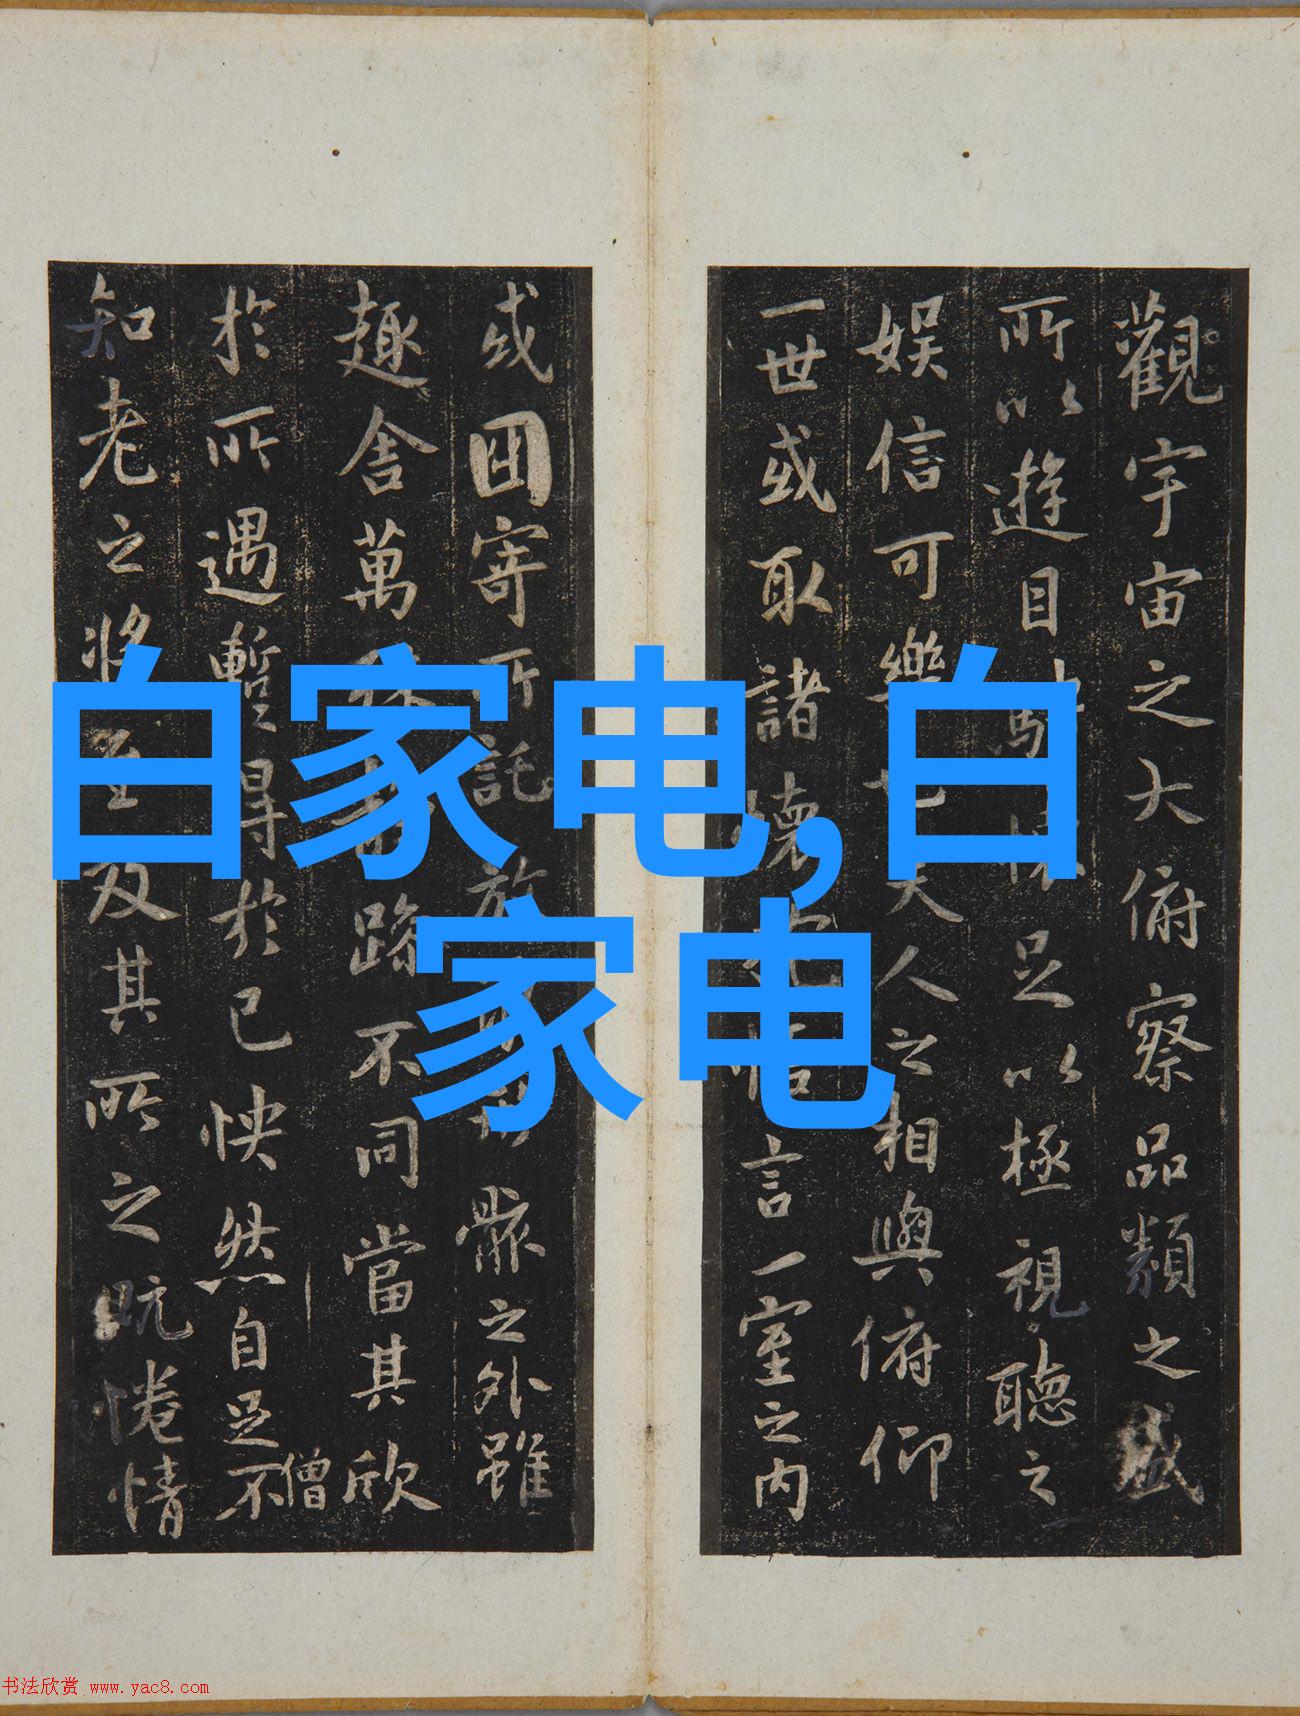 白家电,白
家电
觀宇宙之大俯察品類之盛
所以遊目足以極視聽之
娛信可樂人之相與俯仰
一世或取諸懷言一室之内
或因寄所託骸之外雖
趣舍萬躁不同當其欣
於所遇暫得於己快然自足不
僧
知老之将至及其所之既惓情
书法欣赏 www.yac8.com